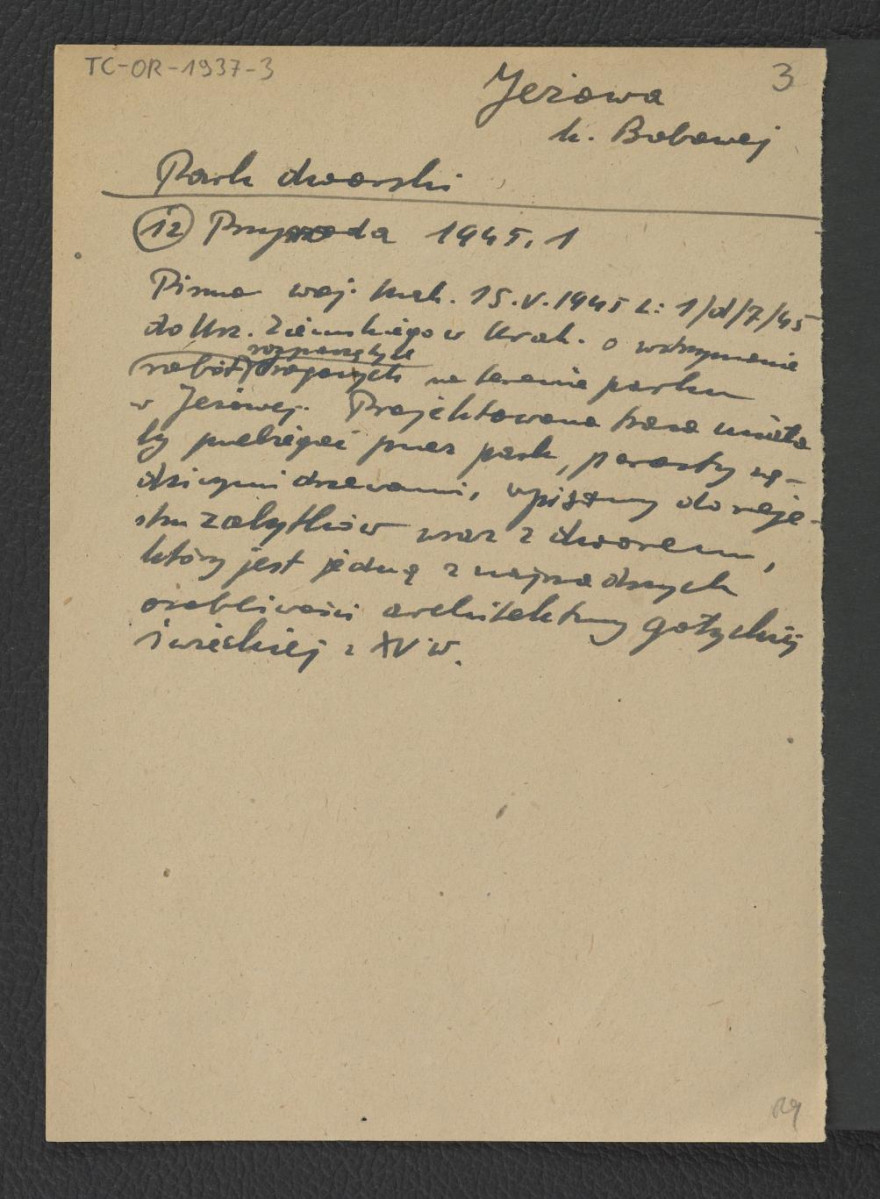 TC-OR-1937-3
3
Jeżowa
k. Bobowej
Park dworski
12 Przyroda 1945, 1
Pismo woj. krak. 15.V.1945 L: 1/d/7/45
do Urz. Ziemskiego w Krak. o wstrzymanie
rozpoczętych
robót drogowych na terenie parku
w Jeżowej. Projektowana trasa miała
by przebiegać przez park, porosły sę-
dziwymi drzewami, wpisany do reje-
stru zabytków wraz z dworem,
który jest jedną z najrzadszych
osobliwości architektury gotyckiej
świeckiej z XV w.